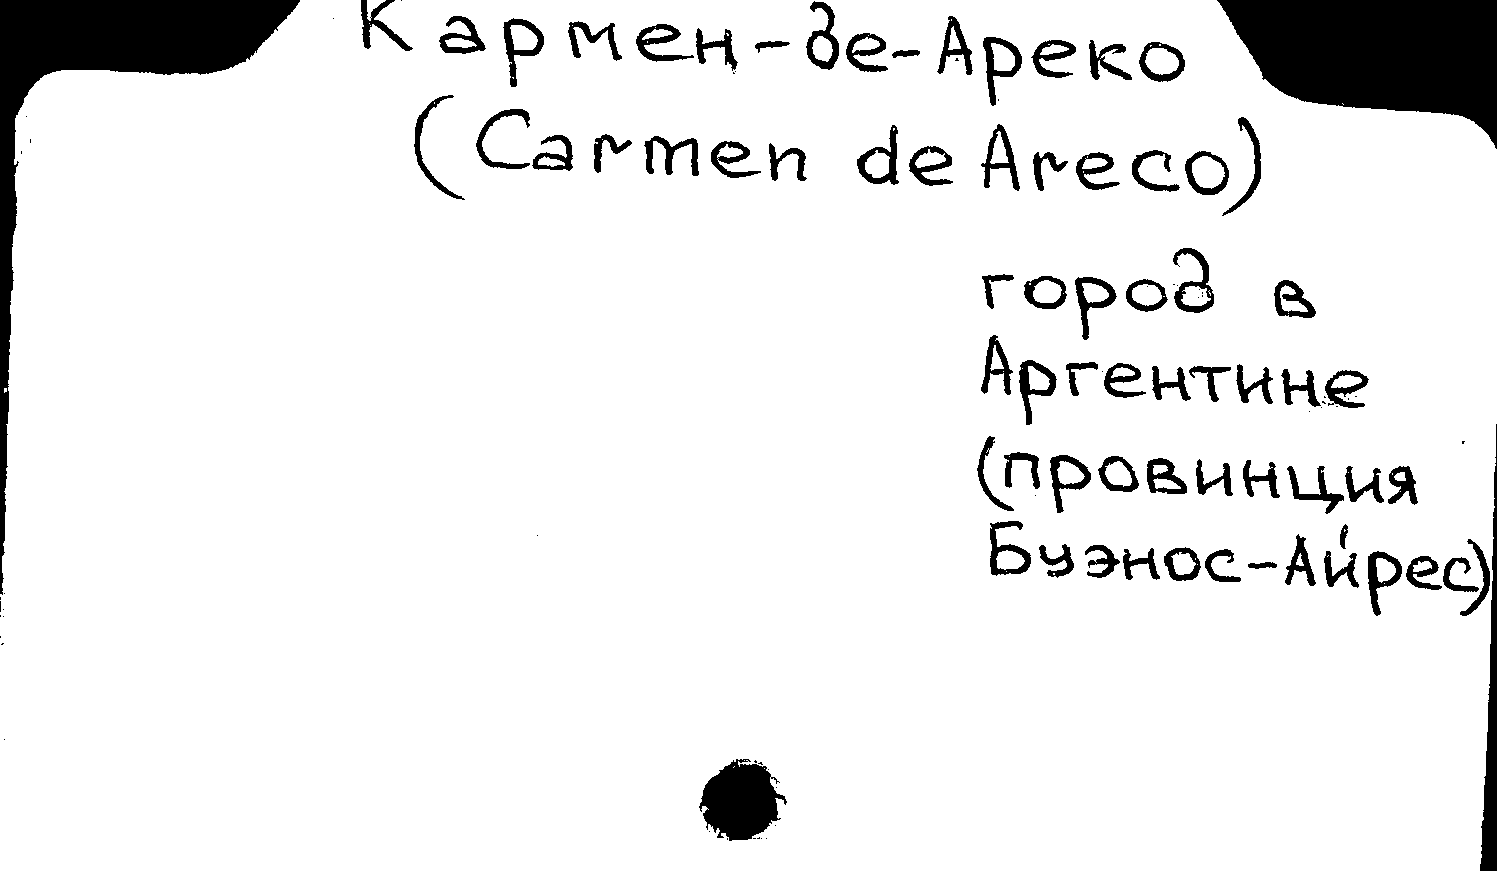 Кармен-де-Ареко
(Carmen de Areco)
город в
Аргентине
(провинция
Буэнос-Айрес)